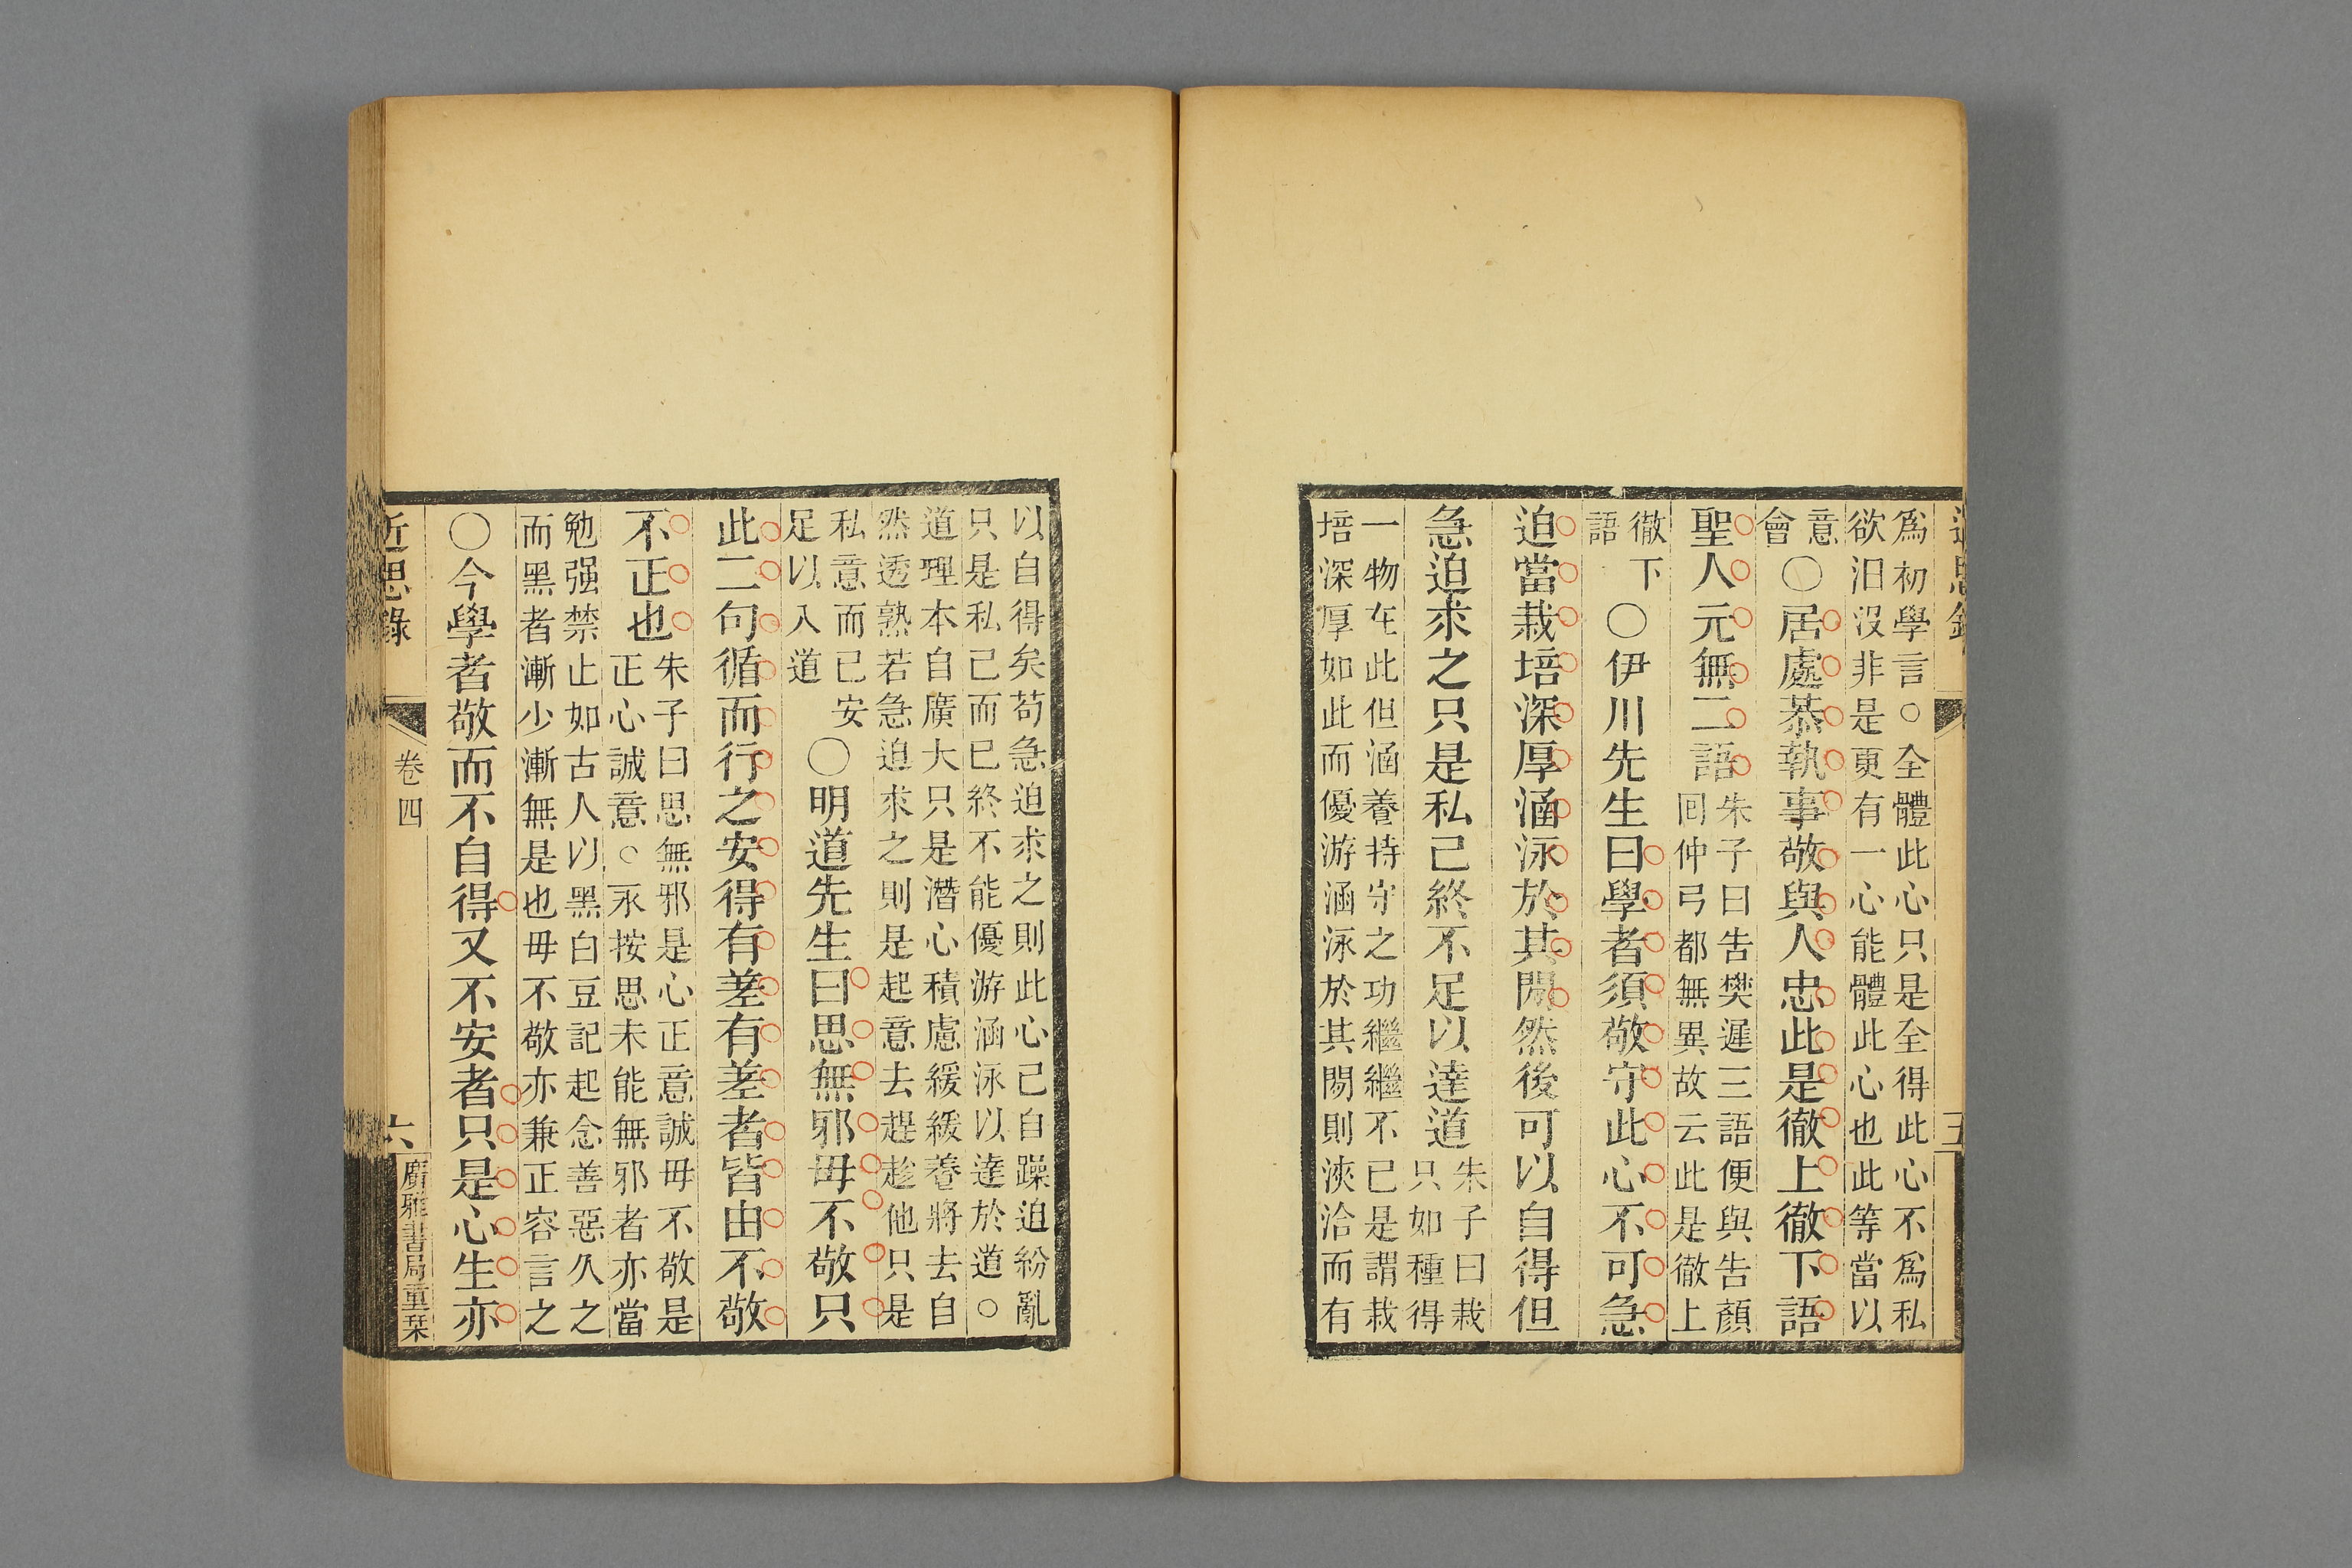 近思錄
五
爲初學言○全體此心只是全得此心不爲私
欲汩沒非是更有一心能體此心也此等當以
意
會
〇居處恭執事敬與人忠此是徹上徹下語
聖人元無二語
朱子曰告樊遲三語便與告顏
回仲弓都無異故云此是徹上
徹下
語
〇伊川先生曰學者須敬守此心不可急
迫當栽培深厚涵泳於其閒然後可以自得但
急迫求之只是私己終不足以達道
朱子曰栽
只如種得
一物在此但涵養持守之功繼繼不已是謂栽
培深厚如此而優游涵泳於其閒則浹洽而有
以自得矣苟急迫求之則此心已自躁迫紛亂
只是私己而已終不能優游涵泳以達於道○
道理本自廣大只是潛心積慮緩緩養將去自
然透熟若急迫求之則是起意去趕趁他只是
私意而已安
足以入道
〇明道先生曰思無邪毋不敬只
此二句循而行之安得有差有差者皆由不敬
不正也
朱子曰思無邪是心正意誠毋不敬是
正心誠意○永按思未能無邪者亦當
勉强禁止如古人以黑白豆記起念善惡久之
而黑者漸少漸無是也毋不敬亦兼正容言之
〇今學者敬而不自得又不安者只是心生亦
近思錄
卷四
六
廣雅書局重栞